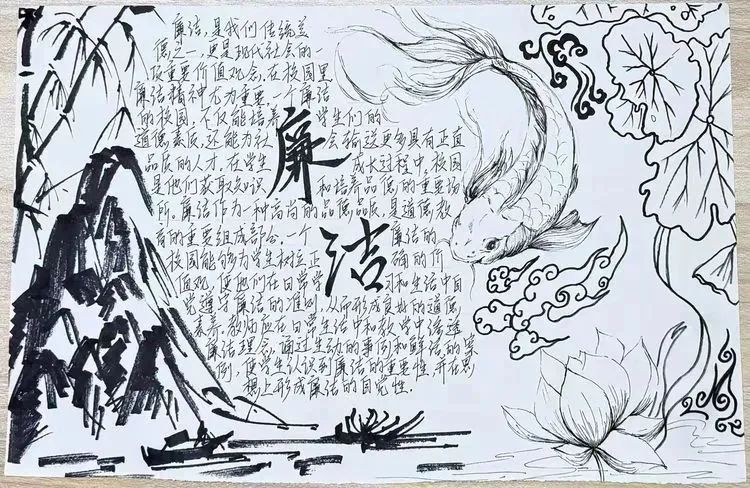 廉洁,是我们传统美
德之一,更是现代社会的一
一般重要价值观念,在校园里
廉洁精神尤为重要,一个廉洁
的校园,不仅能培养学生们的
道德素质,还能为社会输送更多具有正直
品质的人才,在学生成长过程中,校园
是他们获取知识和培养品德的重要场
所。廉洁作为一种高尚的品德品质,是道德教
育的重要组成部分,一个廉洁的
校园能够为学生树立正确的价
值观,使他们在日常学习和生活中自
觉遵守廉洁的准则,从而形成良好的道德
素养,教师应在日常生活中和教学中渗透
廉洁理念,通过生动的事例和鲜活的案
例,使学生认识到廉洁的重要性,并在思
想上形成廉洁的自觉性.
廉
洁